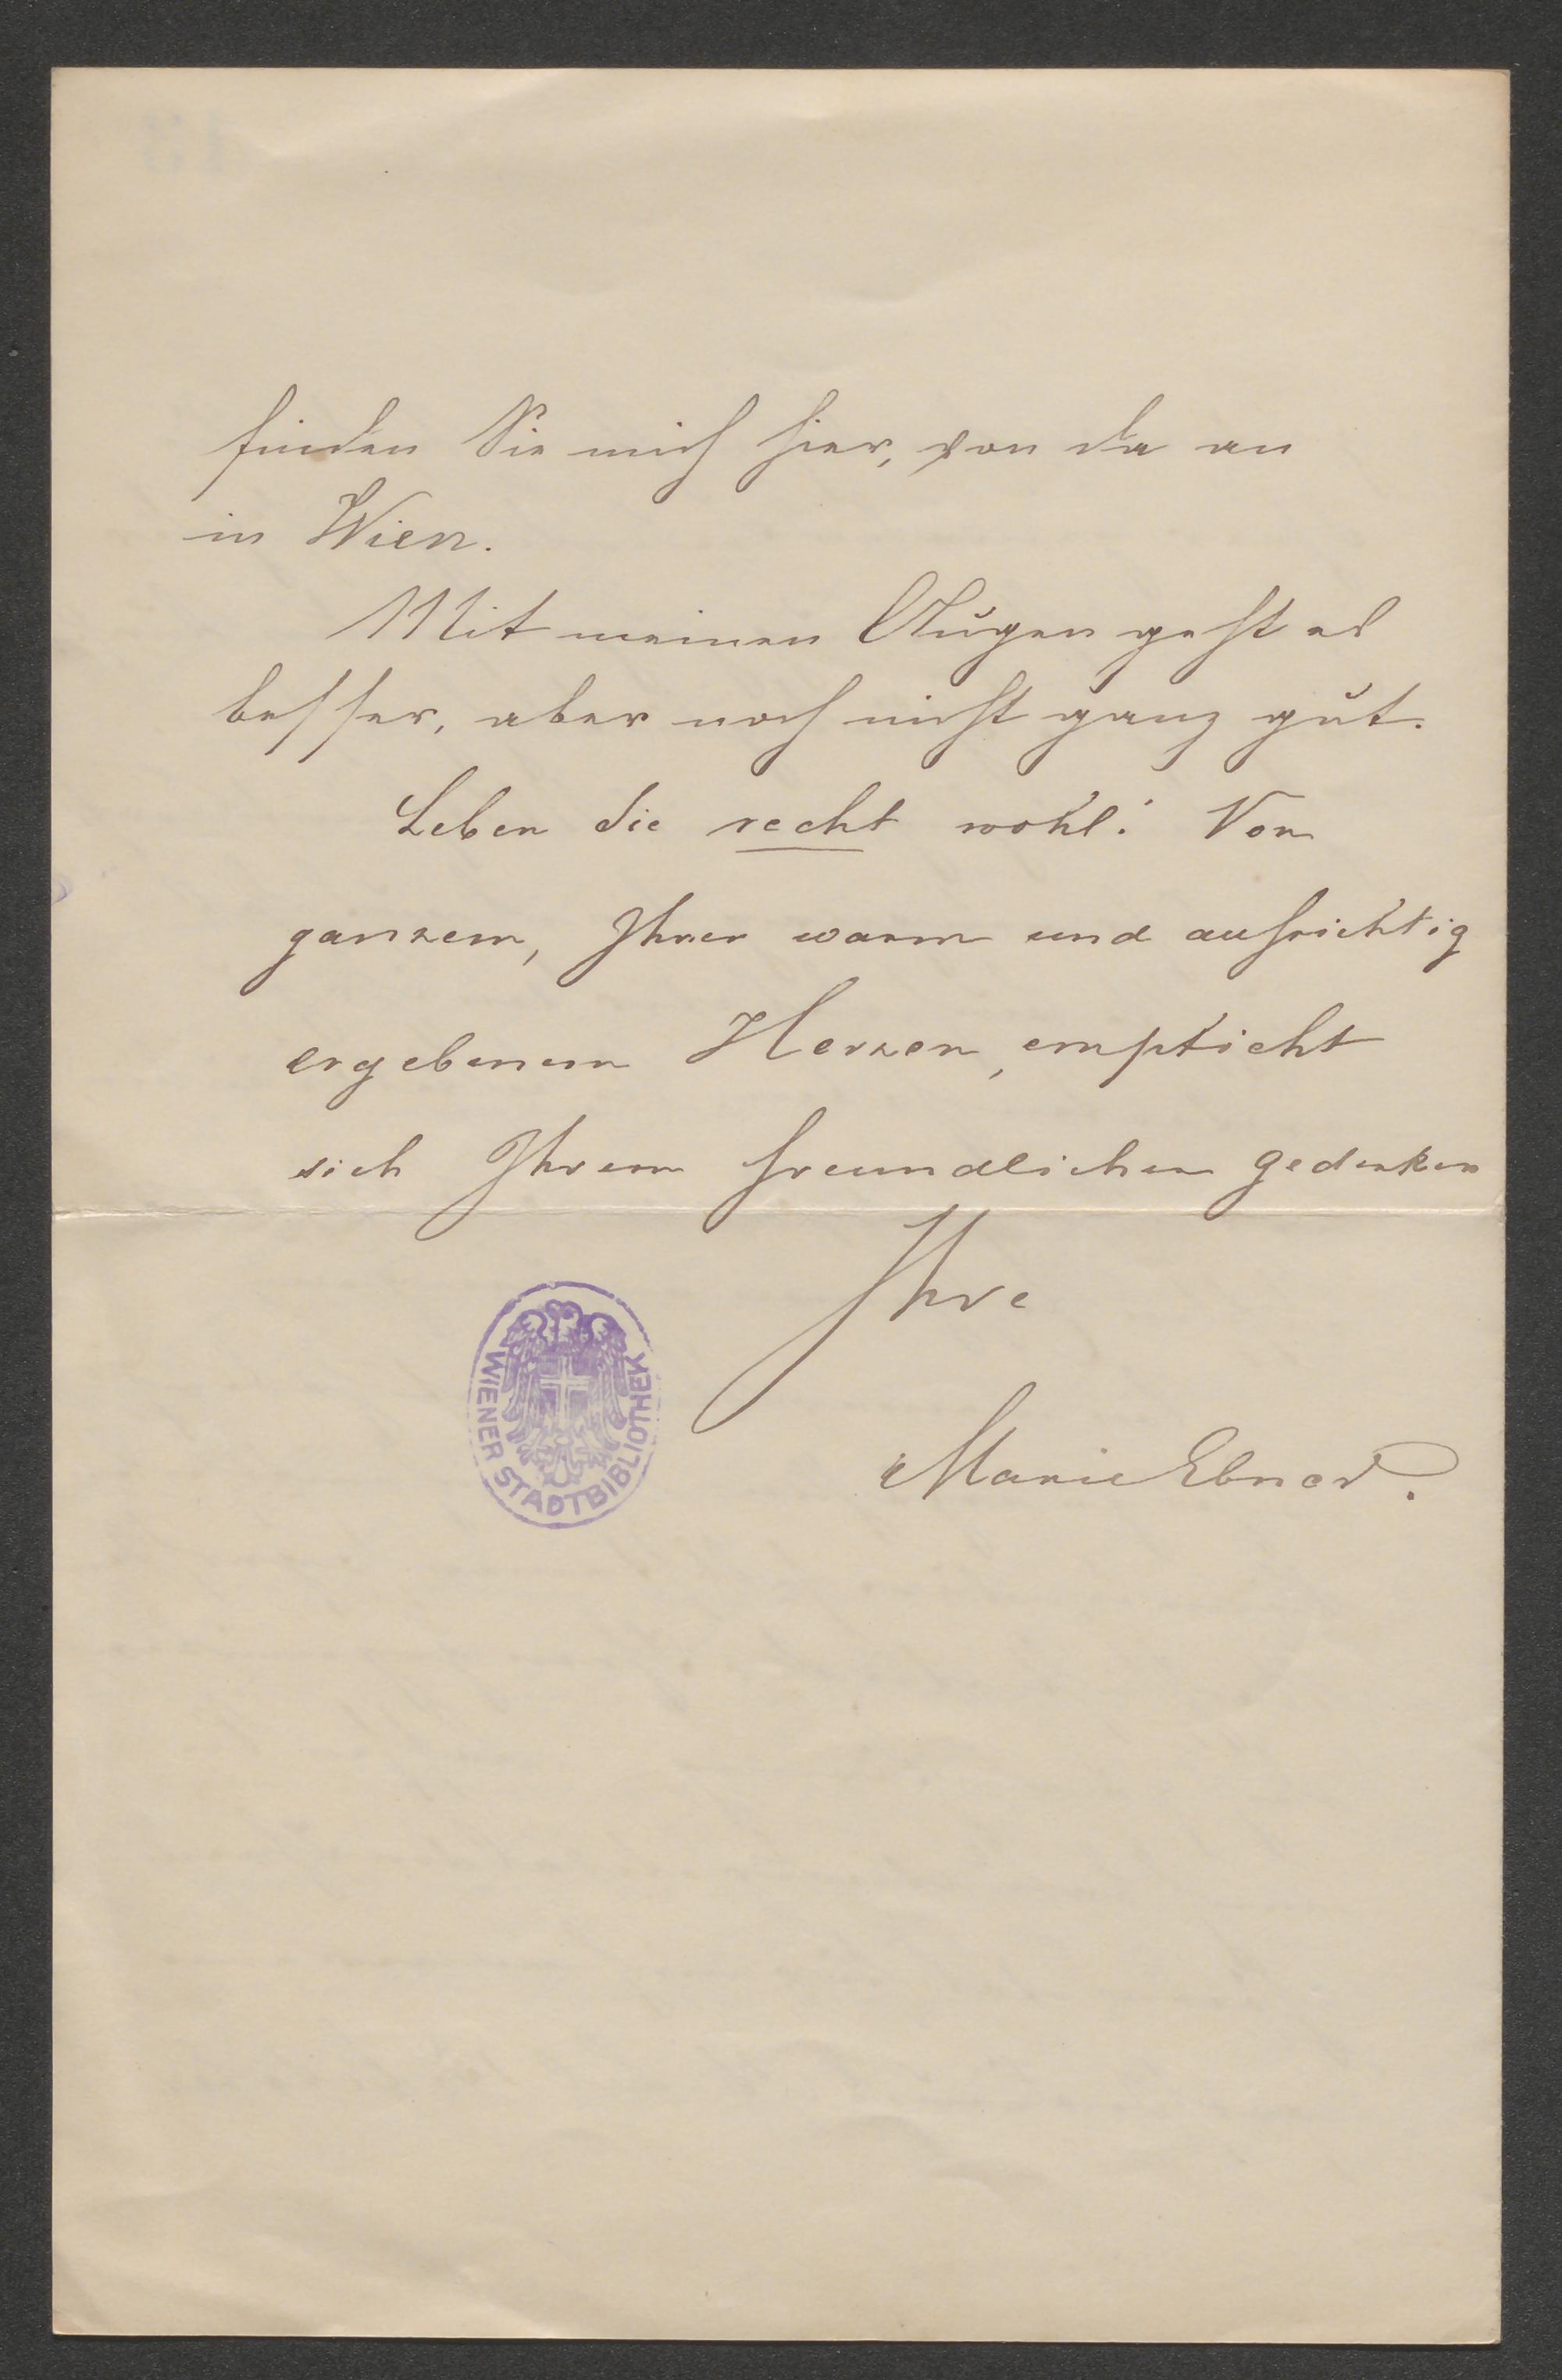 finden Sie mich hier, von da an
in Wien.
Mit meinen Augen geht es
besser, aber noch nicht ganz gut.
Leben Sie recht wohl! Von
ganzem, Ihnen warm und aufrichtig
ergebenem Herzen, empfieht
sich Ihrem freundlichen Gedenken
Ihre
Marie Ebner.
WIENER STADTBIBLIOTHEK